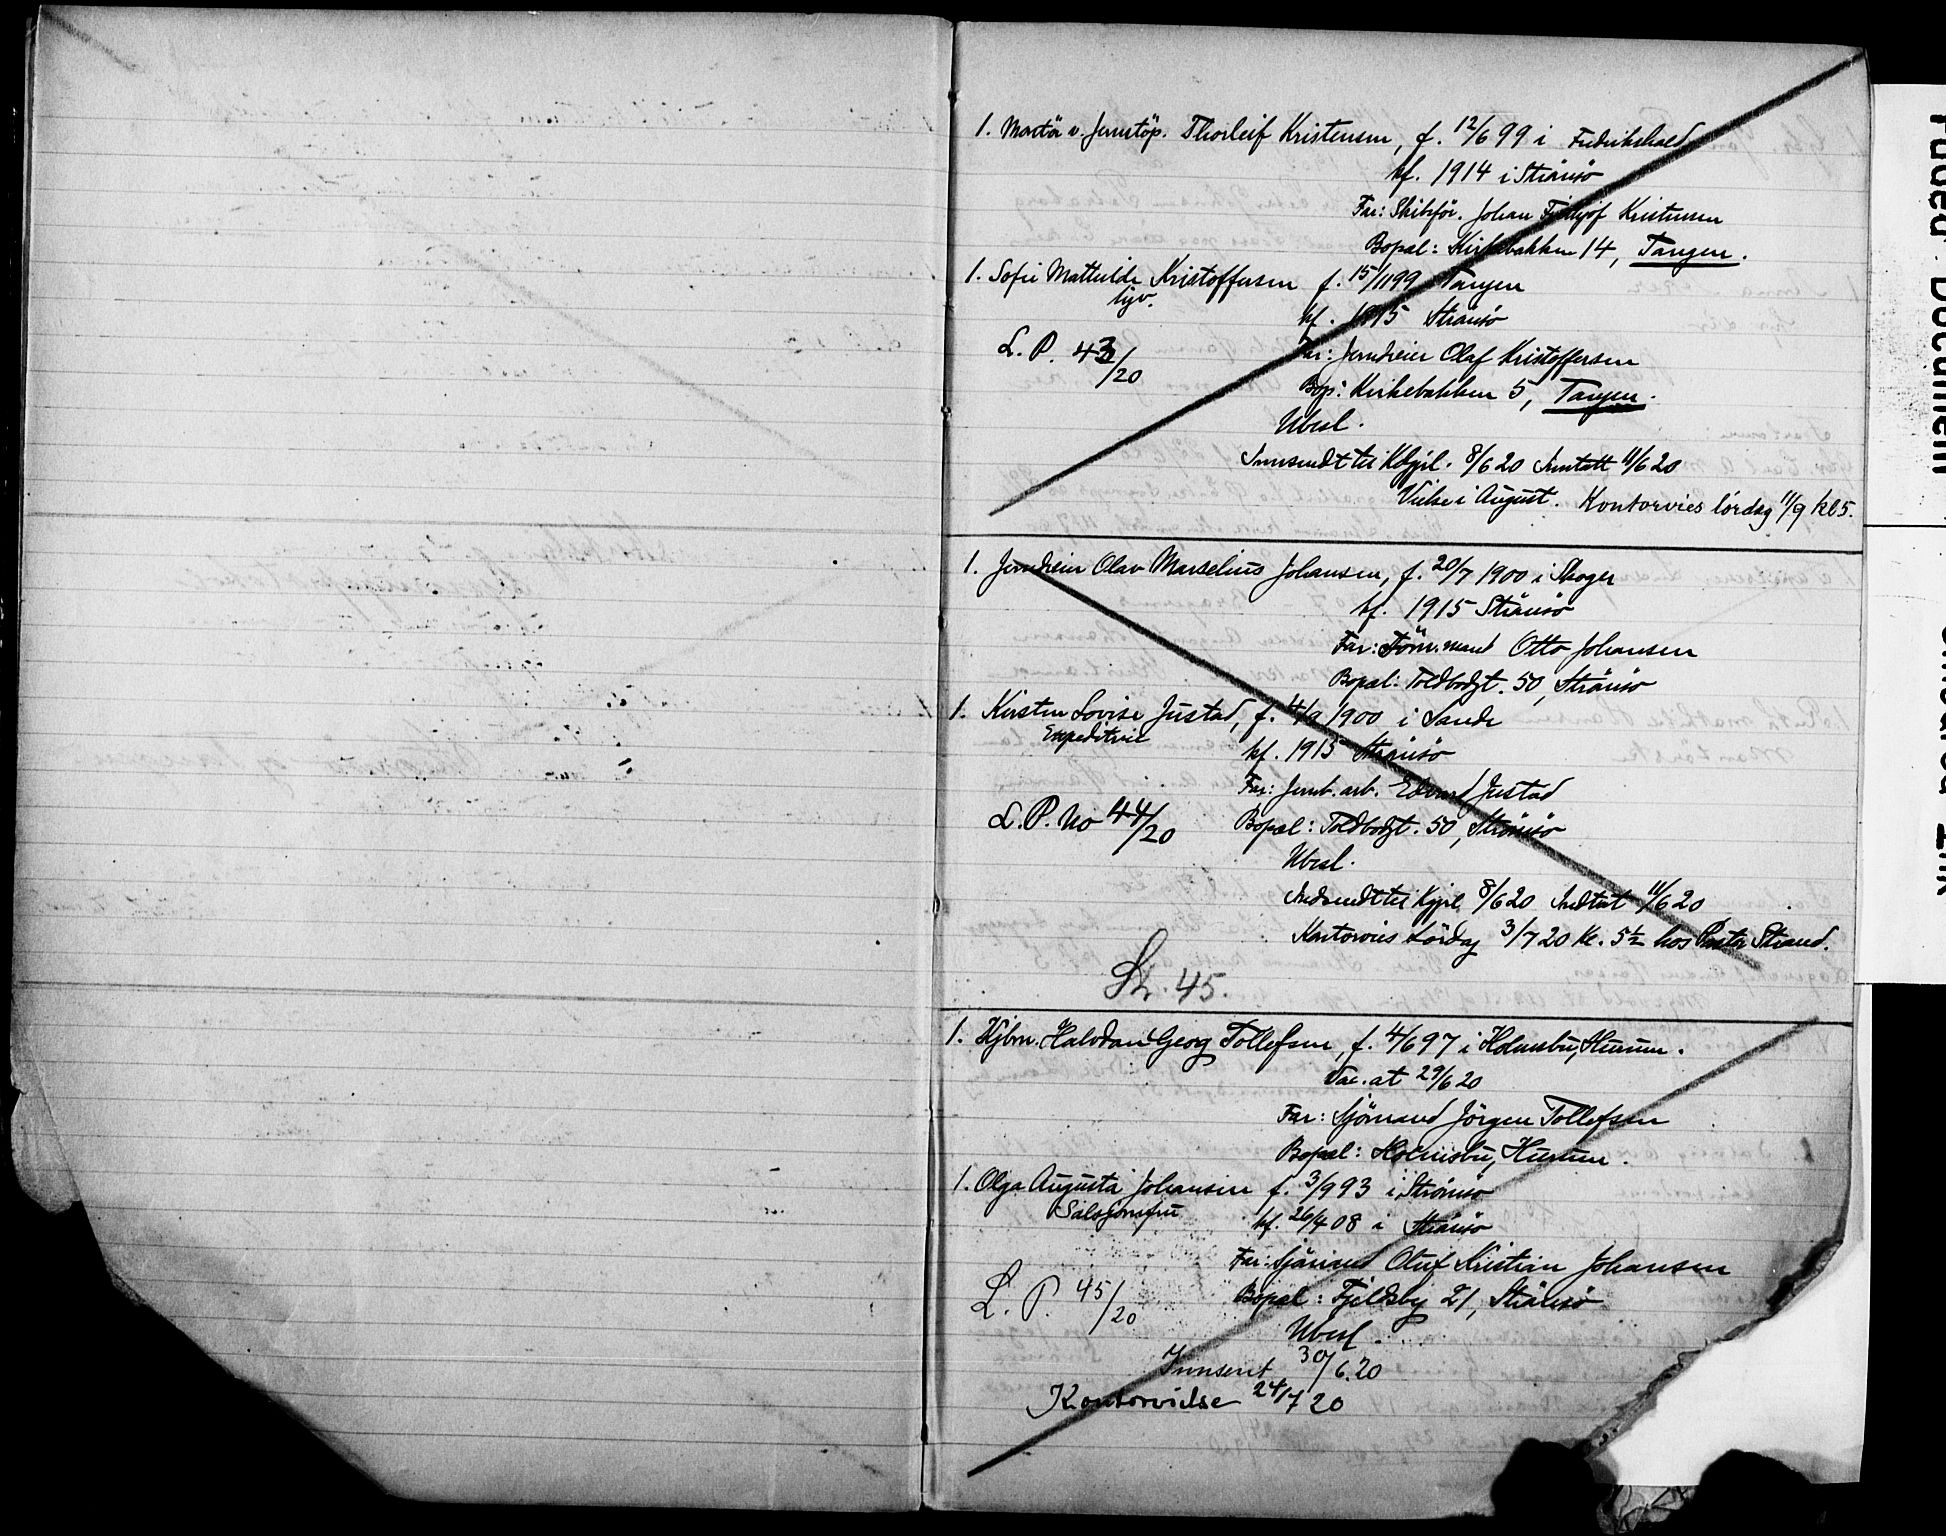 1. Montör v. Jernstöp. Thorleif Kristensen, f. 12/6 99 i Fredrikshald
kf. 1914 i Strömsö
Far: Skibsför. Johan Fridtjof Kristensen
Bopæl: Kirkebakken 14, Tangen.
1. Sofie Mathilde Kristoffersen f. 15/11 99 Tangen
kf. 1915 Strömsö
L. P. 43/20
Far: Jerndreier Olaf Kristoffersen
Bop: Kirkebakken 5, Tangen.
Ubesl.
Innsendt til 8/6 20 Inntatt 11/6 20
Vielse i August. Kontorvies lördag 11/9 kl 5.
1. Jerndreier Olav Marselius Johansen, f. 20/7 1900 i Skoger
kf. 1915 Strömsö
Far: Töm.mand Otto Johansen
Bopæl: Toldbodgt. 50, Strömsö
1. Kirsten Lovise Justad, f. 1900 i Sande
kf. 1915 Strömsö
Far: Jernb. arb. Edvard Justad
L. P. No 44/20
Bopæl: Toldbodgt. 50, Strömsö
Ubesl.
Indsendt til 8/6 20 Indtat 11/6 20
Kontorvies Lördag 3/7 20 Kl. 5½ hos Pastor Strand.
45.
1. Halvdan Georg Tollefsen, f. 4/6 97 i Holmsbu, Hurum.
Vac. at 29/6 20
Far: Sjömand Jörgen Tollefsen
Bopæl: Holmsbu, Hurum.
1. Olga Augusta Johansen f. 3/9 93 i Strömsö
kf. 26/4 08 i Strömsö
Far: Sjömand Oluf Kristian Johansen
L. P. 45/20
Bopæl: Fjeldsby 21, Strömsö
Ubesl.
Innsent 30/6.20
Kontorvielse 24/7 20
Faded Document
Ink